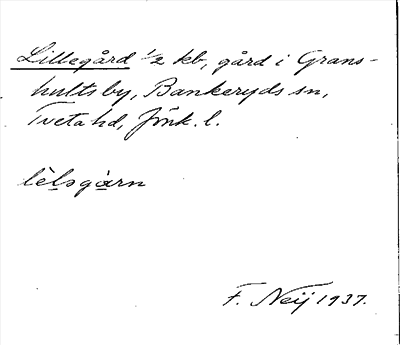 Lillegård 1/2 kb, gård i Grans-
hults by, Bankeryds sn,
Tveta hd, Jönk. l.
lèlsgàrn
F. Neij 1937.